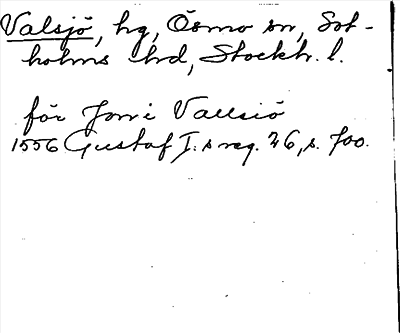 Valsjö, hg, Ösmo sn, Sot-
holms hd, Stockh. l.
för Jon i Vallsiö
1556 Gustaf I.s reg. 26, s. 700.